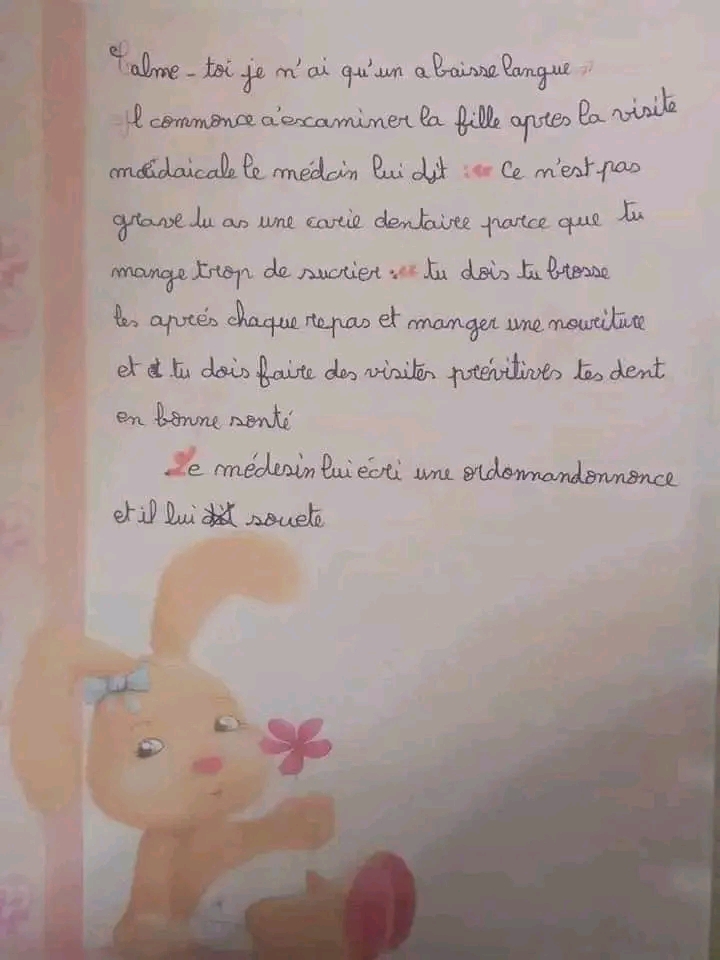 Calme - toi je n'ai qu'un abaisse langue »
Il commonce a'escaminer la fille apres la visite
médaicale le médcin lui dit : « Ce n'est pas
grave tu as une carie dentaire parce que tu
mange trop de sucrier. « tu dois tu brosse
les aprés chaque repas et manger une nouriture
et tu dois faire des visites prévitives tes dent
en bonne sonté
Le médesin lui écri une ordonnandonnonce
et il lui dit souete